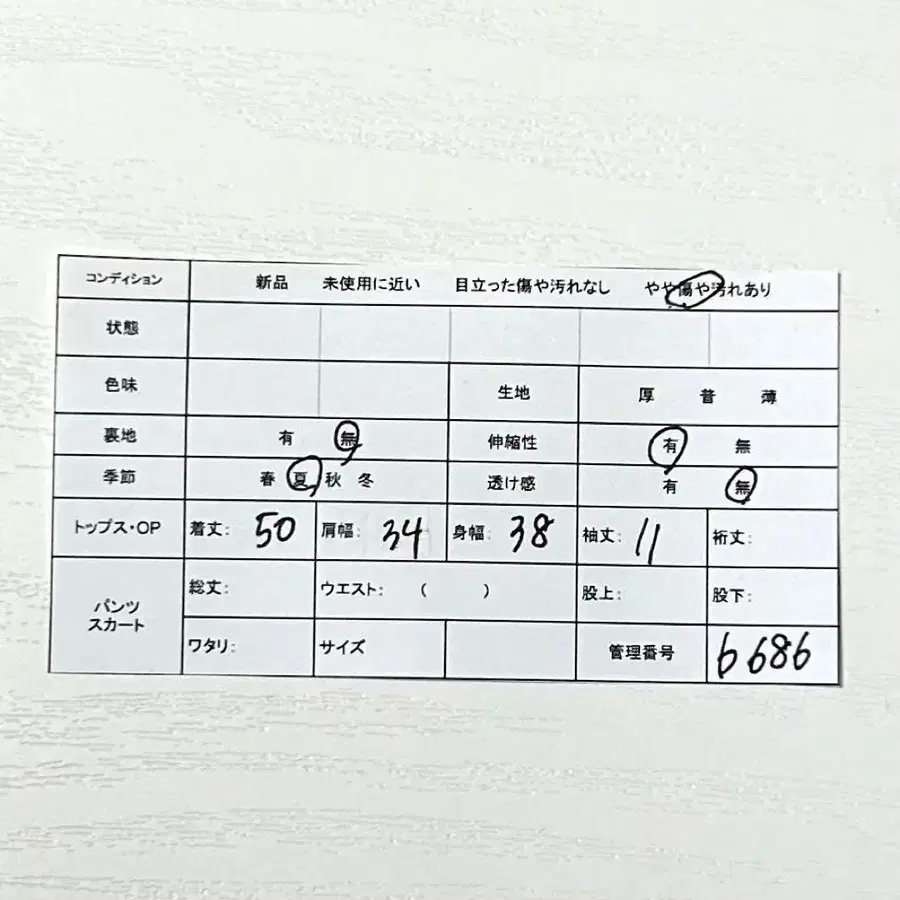 コンディション 新品 未使用に近い 目立った傷や汚れなし やや傷や汚れあり
状態
色味 生地 厚 普 薄
裏地 有 無 伸縮性 有 無
季節 春 夏 秋 冬 透け感 有 無
トップス・OP 着丈: 50 肩幅: 34 身幅: 38 袖丈: 11 裄丈:
パンツ
スカート
総丈: ウエスト: ( ) 股上: 股下:
ワタリ: サイズ 管理番号 6686